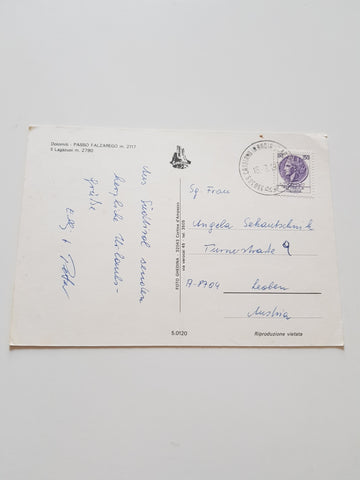 Dolomiti - PASSO FALZAREGO m. 2117
Il Lagazuoi m. 2790
Aus Südtirol senden
herzliche Urlaubs-
grüße
Elly + Peter
FOTO GHEDINA - 32043 Cortina d'Ampezzo
5.0120
50
Sg. Frau
Angela Schautschnik
Turnerstraße 9
A-8704 Leoben
Austria
Riproduzione vietata